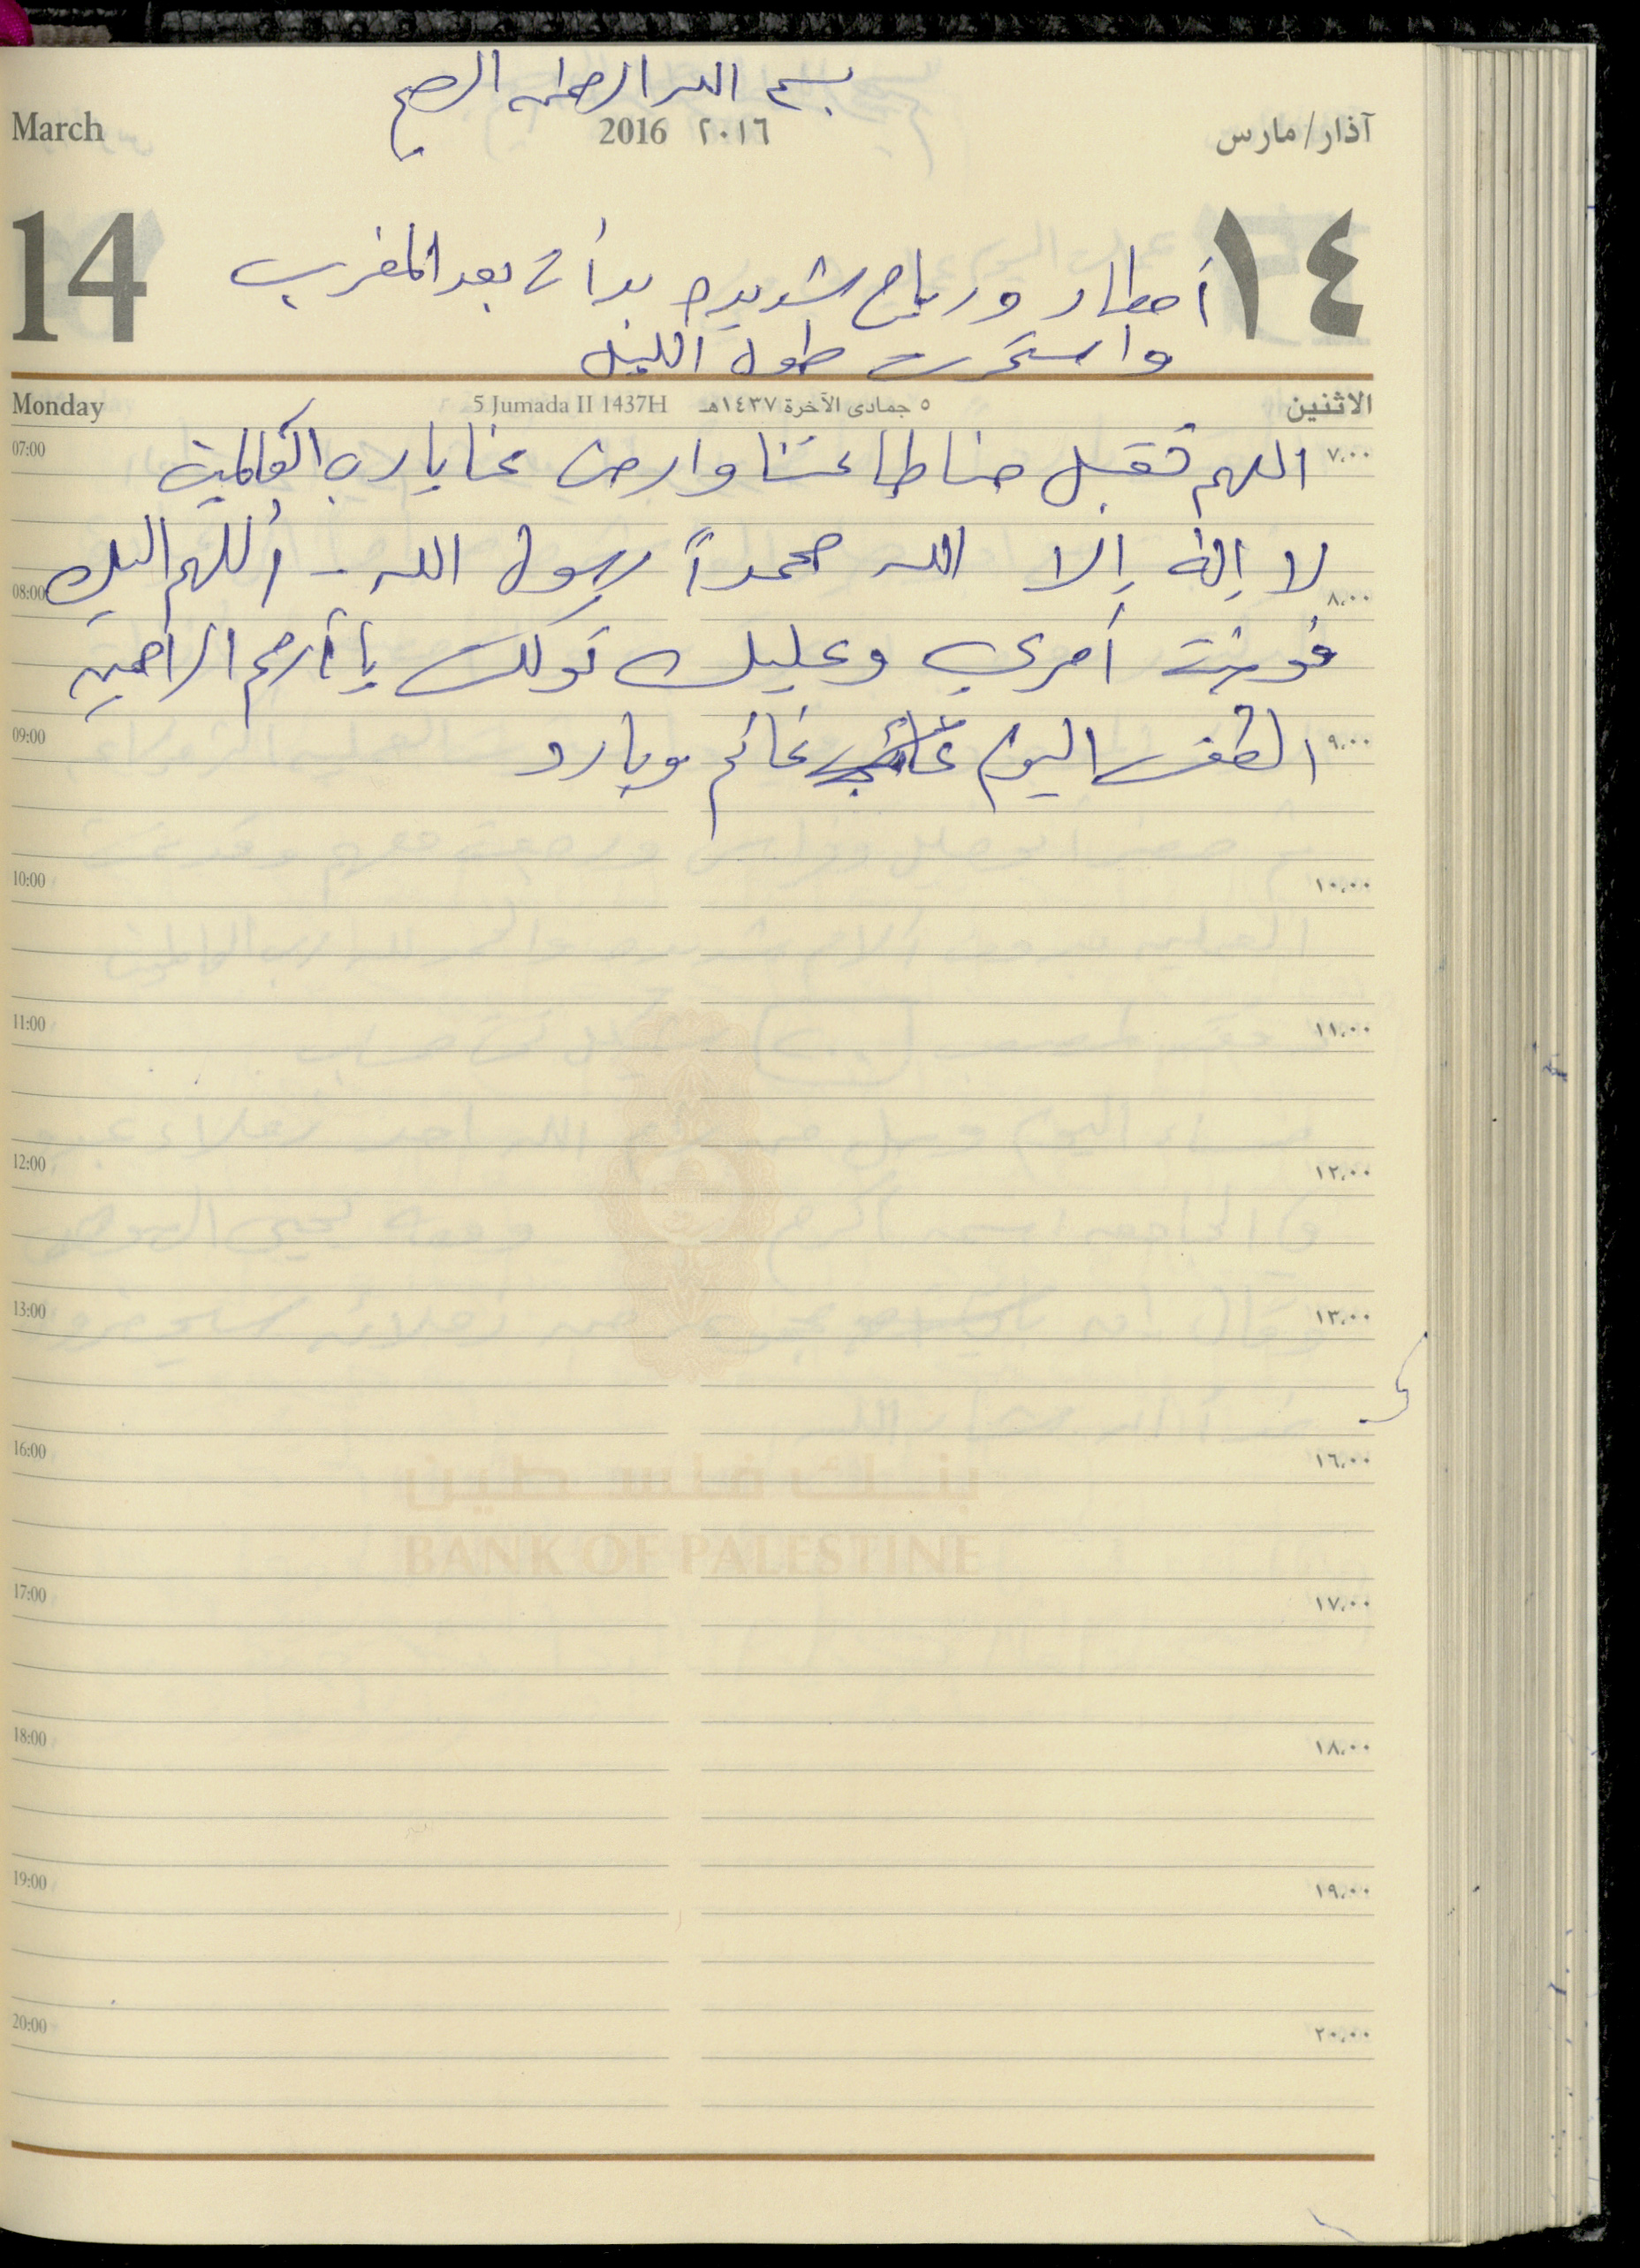 بسم الله الرحمن الرحيم
March 2016 ٢٠١٦ آذار/مارس
14 ١٤
أمطار ورياح شديده بدأت بعد المغرب
واستمرت طول الليل
Monday 5 Jumada II 1437H ٥ جمادى الآخرة ١٤٣٧هـ الاثنين
07:00 ٧،٠٠
اللهم تقبل منا طاعتنا وارض عنا يا رب العالمين
لا إله إلا الله محمداً رسول الله - اللهم اليك
08:00 ٨،٠٠
فوضت أمري وعليك توكلت يا أرحم الراحمين
09:00 ٩،٠٠
الطقس اليوم غائم وبارد
10:00 ١٠،٠٠
11:00 ١١،٠٠
12:00 ١٢،٠٠
13:00 ١٣،٠٠
16:00 ١٦،٠٠
بنك فلسطين
BANK OF PALESTINE
17:00 ١٧،٠٠
18:00 ١٨،٠٠
19:00 ١٩،٠٠
20:00 ٢٠،٠٠